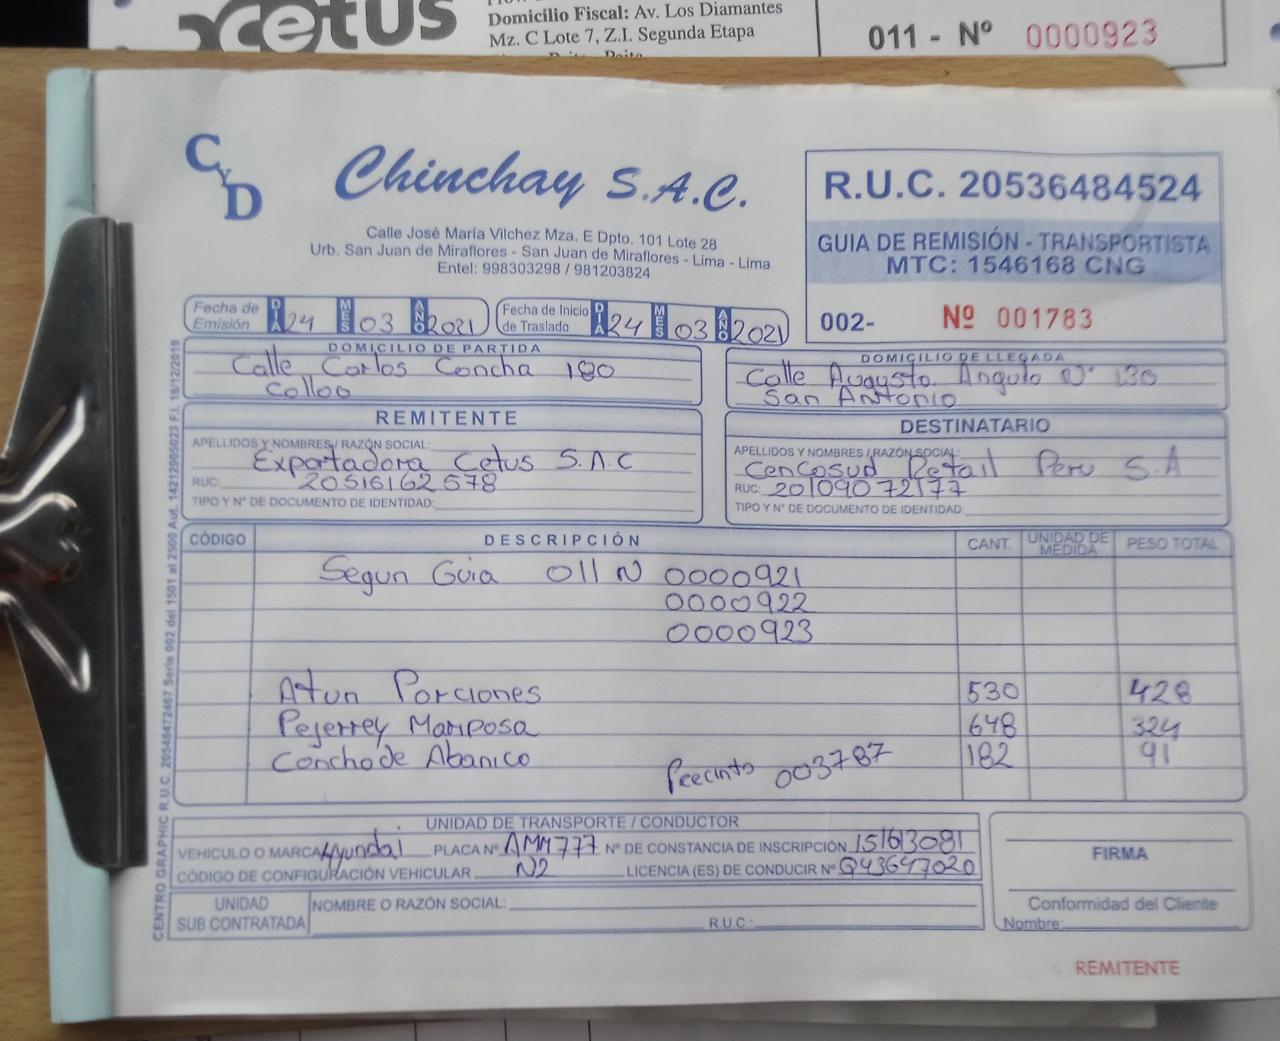 cetus
Domicilio Fiscal: Av. Los Diamantes
Mz. C Lote 7, Z.I. Segunda Etapa
011 - Nº 0000923
CyD
Chinchay S.A.C.
Calle José María Vilchez Mza. E Dpto. 101 Lote 28
Urb. San Juan de Miraflores - San Juan de Miraflores - Lima - Lima
Entel: 998303298 / 981203824
R.U.C. 20536484524
GUIA DE REMISIÓN - TRANSPORTISTA
MTC: 1546168 CNG
002- Nº 001783
Fecha de Emisión DIA 24 MES 03 AÑO 2021
Fecha de Inicio de Traslado DIA 24 MES 03 AÑO 2021
DOMICILIO DE PARTIDA
Calle Carlos Concha 180
Callao
DOMICILIO DE LLEGADA
Calle Augusto Angulo Nº 130
San Antonio
REMITENTE
APELLIDOS Y NOMBRES / RAZÓN SOCIAL:
Exportadora Cetus S.A.C
RUC: 20516162578
TIPO Y Nº DE DOCUMENTO DE IDENTIDAD:
DESTINATARIO
APELLIDOS Y NOMBRES /RAZÓN SOCIAL:
Cencosud Retail Peru S.A
RUC: 20109072177
TIPO Y Nº DE DOCUMENTO DE IDENTIDAD:
CÓDIGO DESCRIPCIÓN CANT. UNIDAD DE MEDIDA PESO TOTAL
Segun Guia 011 N 0000921
0000922
0000923
Atun Porciones 530 428
Pejerrey Mariposa 648 324
Concha de Abanico 182 91
Precinto 003787
UNIDAD DE TRANSPORTE / CONDUCTOR
VEHICULO O MARCA Hyundai PLACA Nº AMM777 Nº DE CONSTANCIA DE INSCRIPCIÓN 151613081
CÓDIGO DE CONFIGURACIÓN VEHICULAR N2 LICENCIA (ES) DE CONDUCIR Nº Q43647020
UNIDAD SUB CONTRATADA
NOMBRE O RAZÓN SOCIAL:
R.U.C.:
FIRMA
Conformidad del Cliente
Nombre:
REMITENTE
CENTRO GRAPHIC R.U.C. 20548472467 Serie 002 del 1501 al 2500 Aut. 14212905023 F.I. 18/12/2019